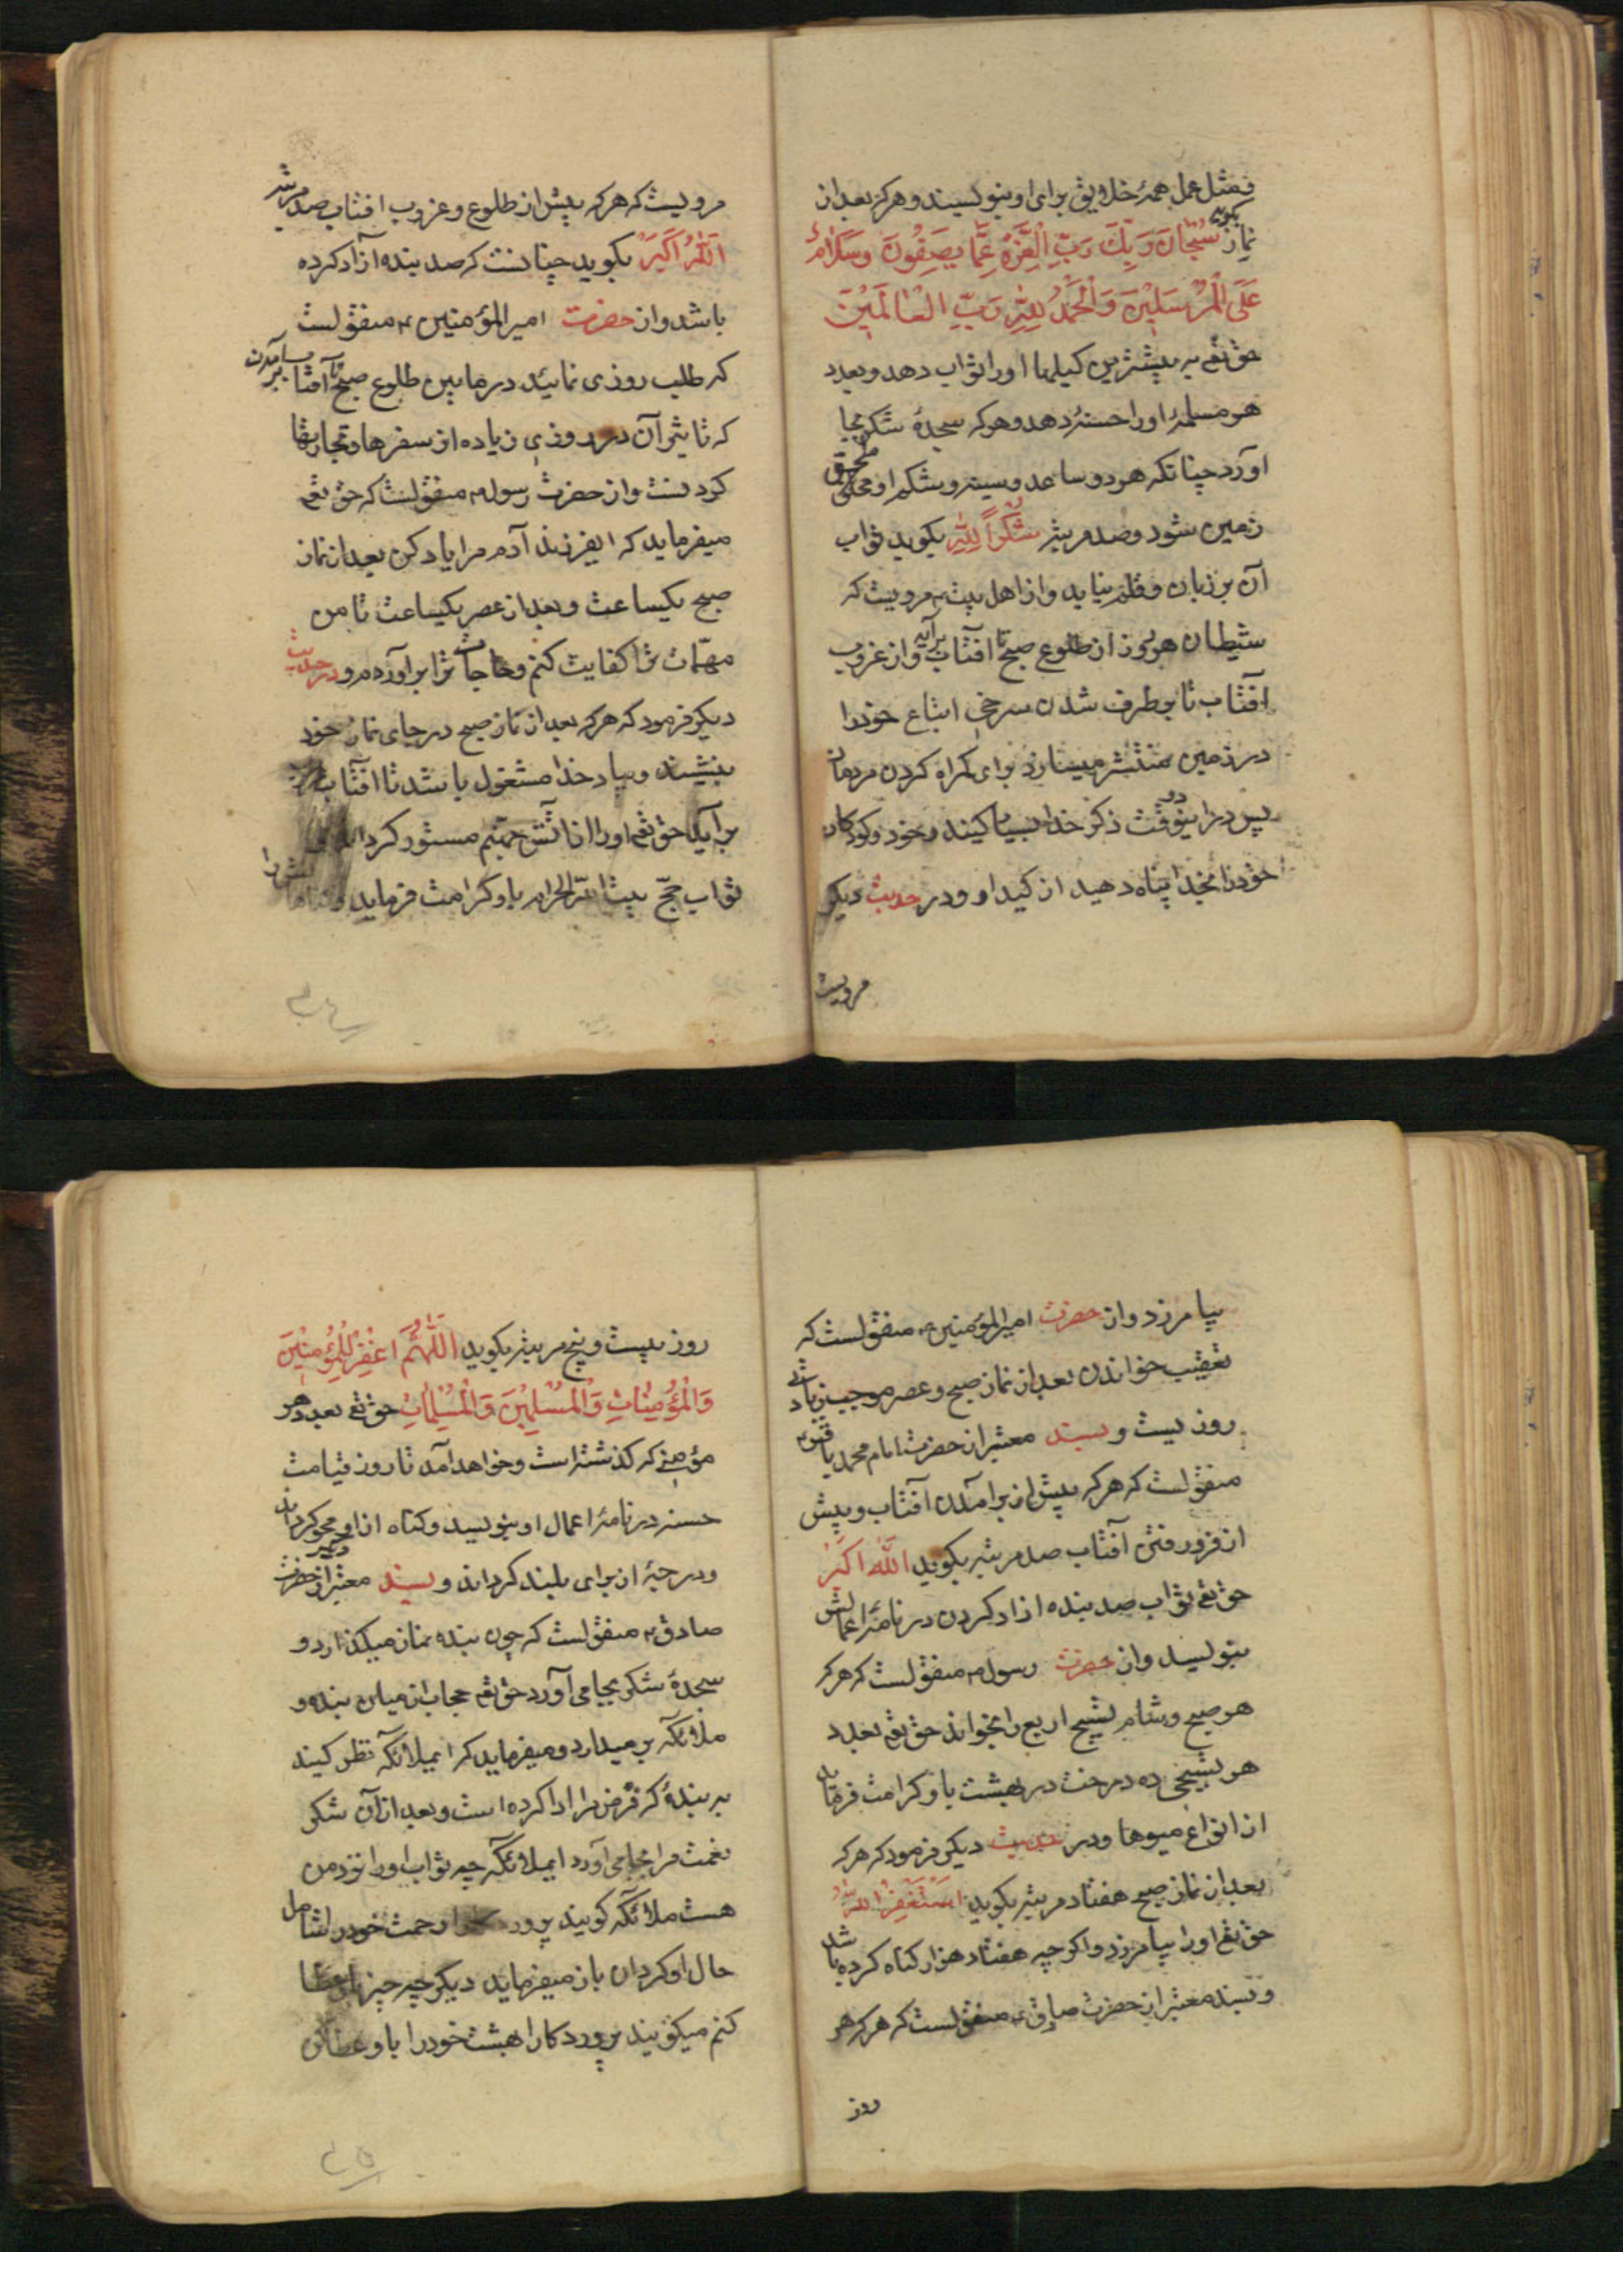 فضل عمل همهٔ خلایق برای او بنویسند و هرکه بعد از
نماز بگوید سُبْحَانَ رَبِّكَ رَبِّ الْعِزَّةِ عَمَّا يَصِفُونَ وَسَلَامٌ
عَلَى الْمُرْسَلِينَ وَالْحَمْدُ لِلّٰهِ رَبِّ الْعَالَمِينَ
حق تعم به بیشترین کیلها او را ثواب دهد و بعدد
هر مسلمهٔ او را حسنهٔ دهد و هرکه سجدهٔ شکر بجا
آورد چنانکه هر دو ساعد و سینه و شکم او ملحق
زمین شود و صد مرتبه شُكْراً لِلّٰهِ بگوید ثواب
آن بر زبان و قلم نیاید و از اهل بیت ع مرویست که
شیطان هر روز از طلوع صبح تا آفتاب برآید و از غروب
آفتاب تا برطرف شدن سرخی اتباع خود را
در زمین منتشر میسازد برای گمراه کردن مردمان
پس در اینوقت ذکر خدا بسیار کنید و خود و کودکان
خود را بخدا پناه دهید از کید او و در حدیث دیگر
مرویست
مرویست که هرکه پیش از طلوع و غروب آفتاب صد مرتبه
اَللّٰهُ اَكْبَرُ بگوید چنانست که صد بنده آزاد کرده
باشد و از حضرت امیر المؤمنین ع منقولست
که طلب روزی نمائید در مابین طلوع صبح تا برآمدن آفتاب
که تاثیر آن در روزی زیاده از سفرها و تجارتها
کردنست و از حضرت رسول ص منقولست که حق تعم
میفرماید که ایفرزند آدم مرا یاد کن بعد از نماز
صبح یکساعت و بعد از عصر یکساعت تا من
مهمّات ترا کفایت کنم و حاجات ترا برآورم و در حدیث
دیگر فرمود که هرکه بعد از نماز صبح در جای نماز خود
بنشیند و بیاد خدا مشغول باشد تا آفتاب
برآید حق تعم او را از آتش جهنم مستور گرداند و
ثواب حجّ بیت اللّٰه الحرام باو کرامت فرماید و گناهانش را
بیامرزد و از حضرت امیر المؤمنین ع منقولست که
تعقیب خواندن بعد از نماز صبح و عصر موجب زیادتی
روزیست و بسند معتبر از حضرت امام محمد باقر ع
منقولست که هرکه پیش از برآمدن آفتاب و پیش
از فرو رفتن آفتاب صد مرتبه بگوید اللّٰه اَكْبَرُ
حق تعم ثواب صد بنده آزاد کردن در نامهٔ اعمالش
بنویسد و از حضرت رسول ص منقولست که هرکه
هر صبح و شام تسبیح اربع را بخواند حق تعم بعدد
هر تسبیحی ده درخت در بهشت باو کرامت فرماید
از انواع میوها و در حدیث دیگر فرمود که هرکه
بعد از نماز صبح هفتاد مرتبه بگوید اَسْتَغْفِرُ اللّٰهَ
حق تعم او را بیامرزد و اگرچه هفتاد هزار گناه کرده باشد
و بسند معتبر از حضرت صادق ع منقولست که هرکه هر
روز
روز بیست و پنج مرتبه بگوید اَللّٰهُمَّ اغْفِرْ لِلْمُؤْمِنِينَ
وَالْمُؤْمِنَاتِ وَالْمُسْلِمِينَ وَالْمُسْلِمَاتِ حق تعم بعدد هر
مؤمنی که گذشته است و خواهد آمد تا روز قیامت
حسنه در نامهٔ اعمال او بنویسد و گناه از او محو گرداند
و درجهٔ از برای بلند گرداند و بسند معتبر دیگر از حضرت
صادق ع منقولست که چون بنده نماز میگذارد و
سجدهٔ شکر بجا می آورد حق تعم حجاب از میان بنده و
ملائکه برمیدارد و میفرماید که ایملائکه نظر کنید
به بندهٔ که فرض مرا ادا کرده است و بعد از آن شکر
نعمت مرا بجا می آورد ایملائکه چه ثواب او را نزد من
هست ملائکه گویند پروردگارا رحمت خود را شامل
حال او گردان باز میفرماید دیگر چه چیز باو عطا
کنم میگویند پروردگارا بهشت خود را باو عطا کن